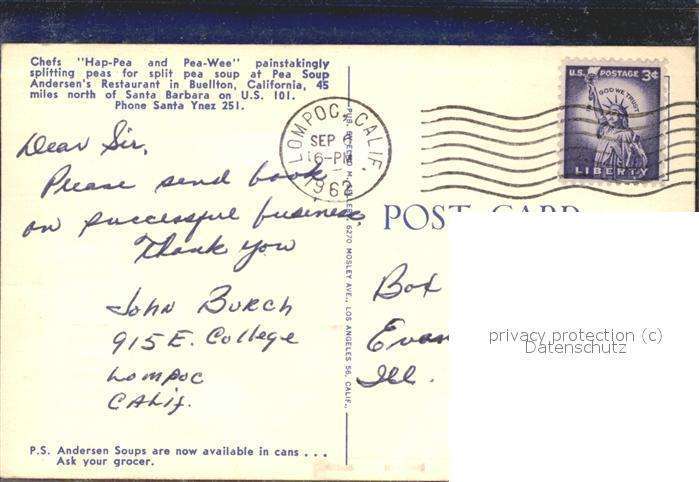 Chefs "Hap-Pea and Pea-Wee" painstakingly
splitting peas for split pea soup at Pea Soup
Andersen's Restaurant in Buellton, California, 45
miles north of Santa Barbara on U.S. 101.
Phone Santa Ynez 251.
Dear Sir,
Please send book
on successful business.
Thank you
John Burch
915 E. College
Lompoc
Calif.
P.S. Andersen Soups are now available in cans . . .
Ask your grocer.
6270 MOSLEY AVE., LOS ANGELES 56, CALIF.
LOMPOC, CALIF.
SEP
6-PM
1962
U.S. POSTAGE 3¢
IN GOD WE TRUST
LIBERTY
POST CARD
Box
Evan
Ill.
privacy protection (c)
Datenschutz